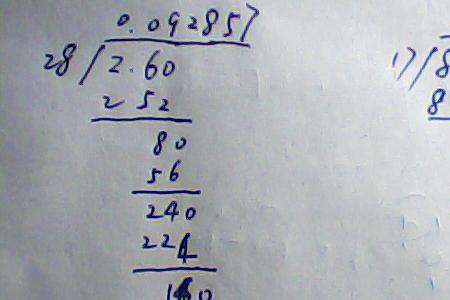 0.092857
28/2.60
252
80
56
240
224
160
17/8
8